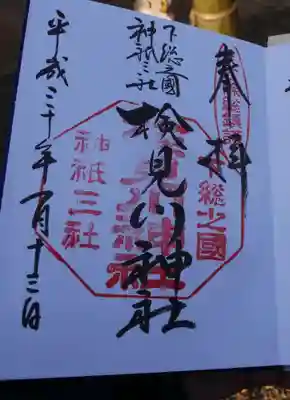 奉拝
下総之國
神祇三社
検見川神社
平成三十年一月十三日
下総之國
神祇三社
検見川神社